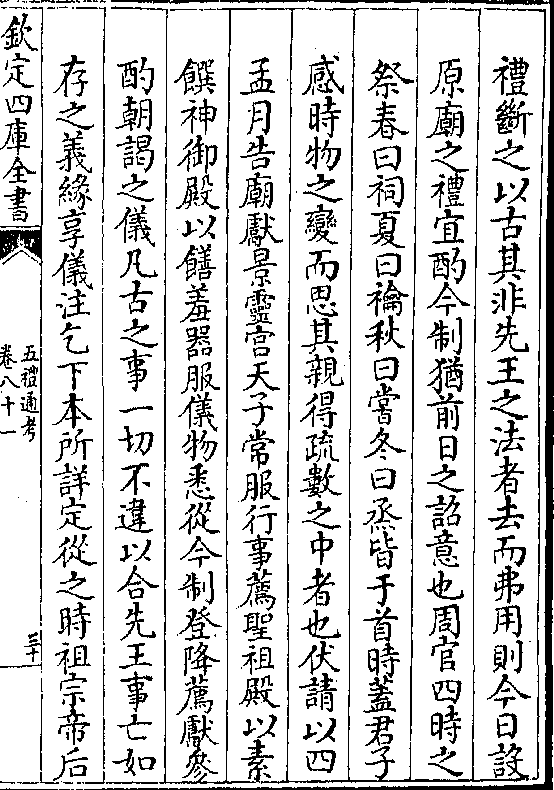 禮斷之以古其非先王之法者去而弗用則今日設
原廟之禮宜酌今制猶前日之詔意也周官四時之
祭春曰祠夏曰禴秋曰嘗冬曰烝皆于首時蓋君子
感時物之變而思其親得疏數之中者也伏請以四
孟月告廟獻景靈宮天子常服行事薦聖祖殿以素
饌神御殿以饍羞器服儀物悉從今制登降薦獻參
酌朝謁之儀凡古之事一切不違以合先王事亡如
存之義緣享儀注乞下本所詳定從之時祖宗帝后
欽定四庫全書
五禮通考
卷八十一
三十